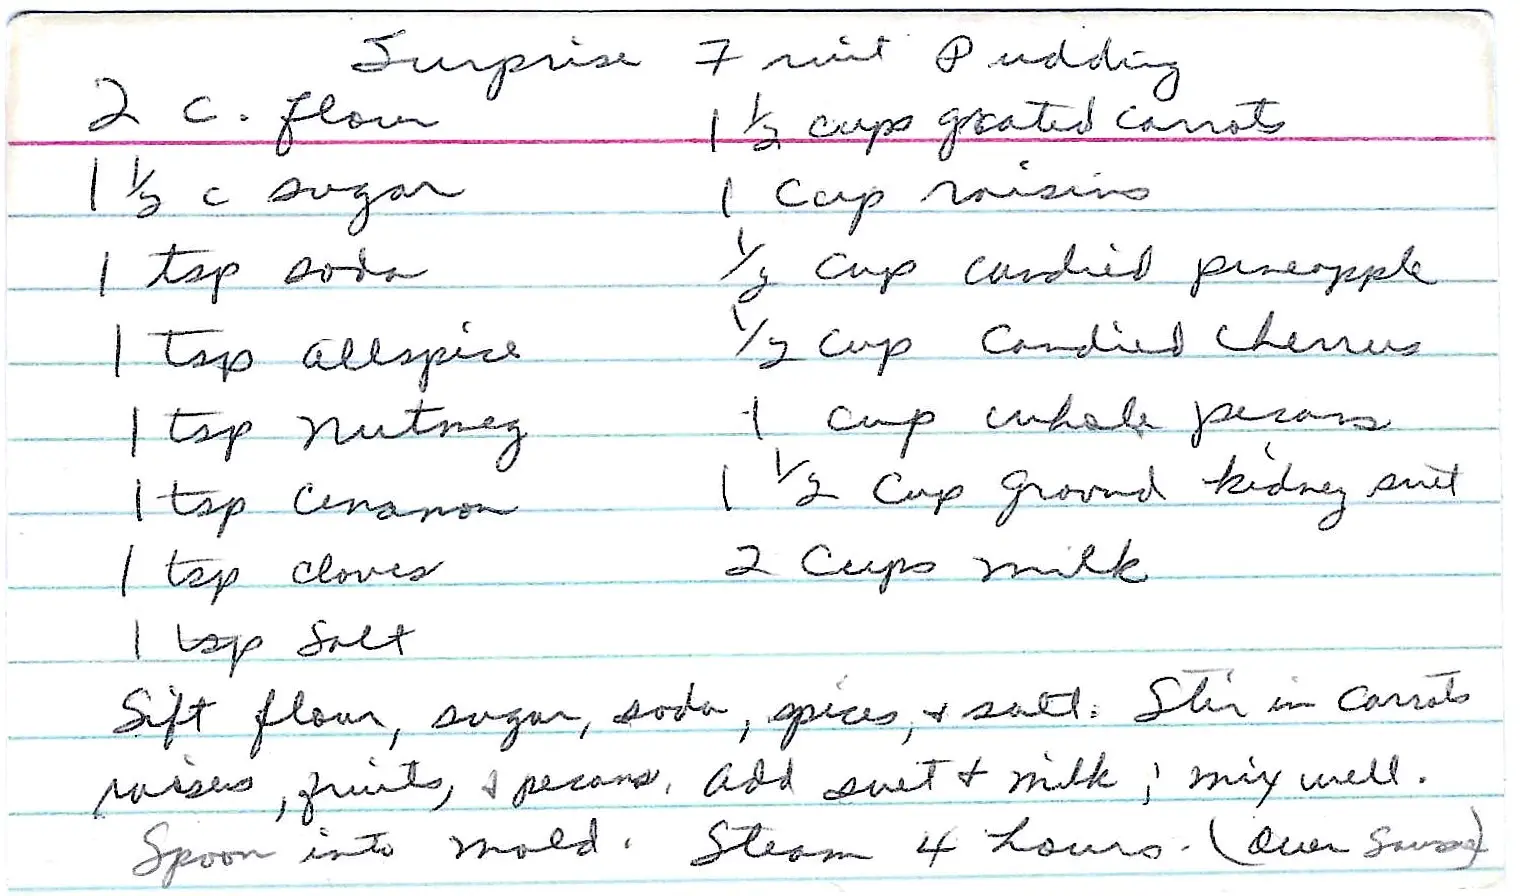 Surprise Fruit Pudding
2 c. flour
1 1/2 c sugar
1 tsp soda
1 tsp allspice
1 tsp nutmeg
1 tsp cinamon
1 tsp cloves
1 tsp salt
1 1/2 cups grated carrots
1 cup raisins
1/2 cup candied pineapple
1/2 cup candied cherries
1 cup whole pecans
1 1/2 cup ground kidney suet
2 cups milk
Sift flour, sugar, soda, spices, + salt. Stir in carrots
raisens, fruits, + pecans. Add suet + milk; mix well.
Spoon into mold. Steam 4 hours. (Over